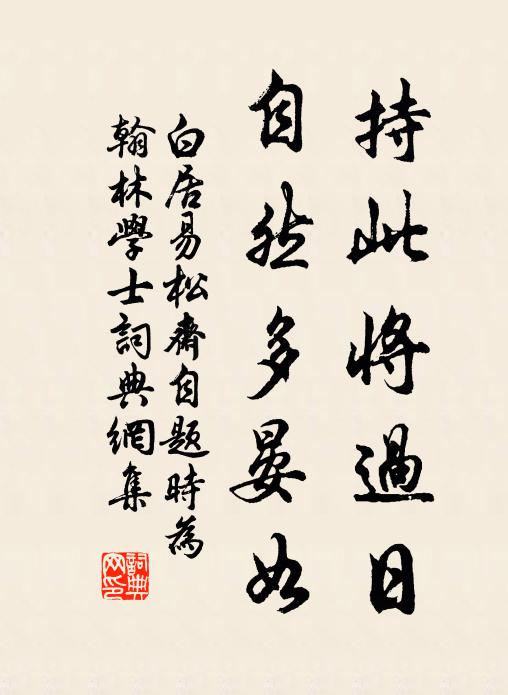 持此將過日
自然多晏如
白居易松齋自題時為
翰林學士詞典網集
詞典网印